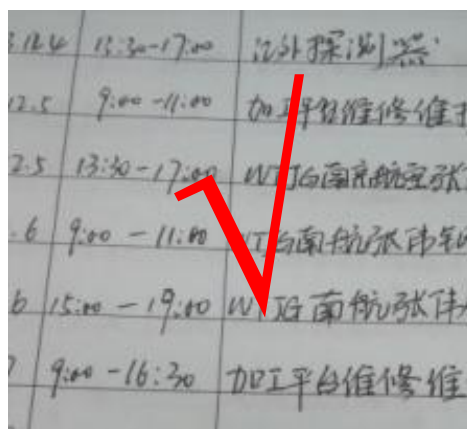 12.4 13:30-17:00 红外探测器
12.5 9:00-11:00 加工平台维修维
2.5 13:30-17:00 WTJG南京航空张
.6 9:00-11:00 WTJG南航张伟
6 15:00-19:00 WTJG南航张伟
9:00-16:30 加工平台维修维